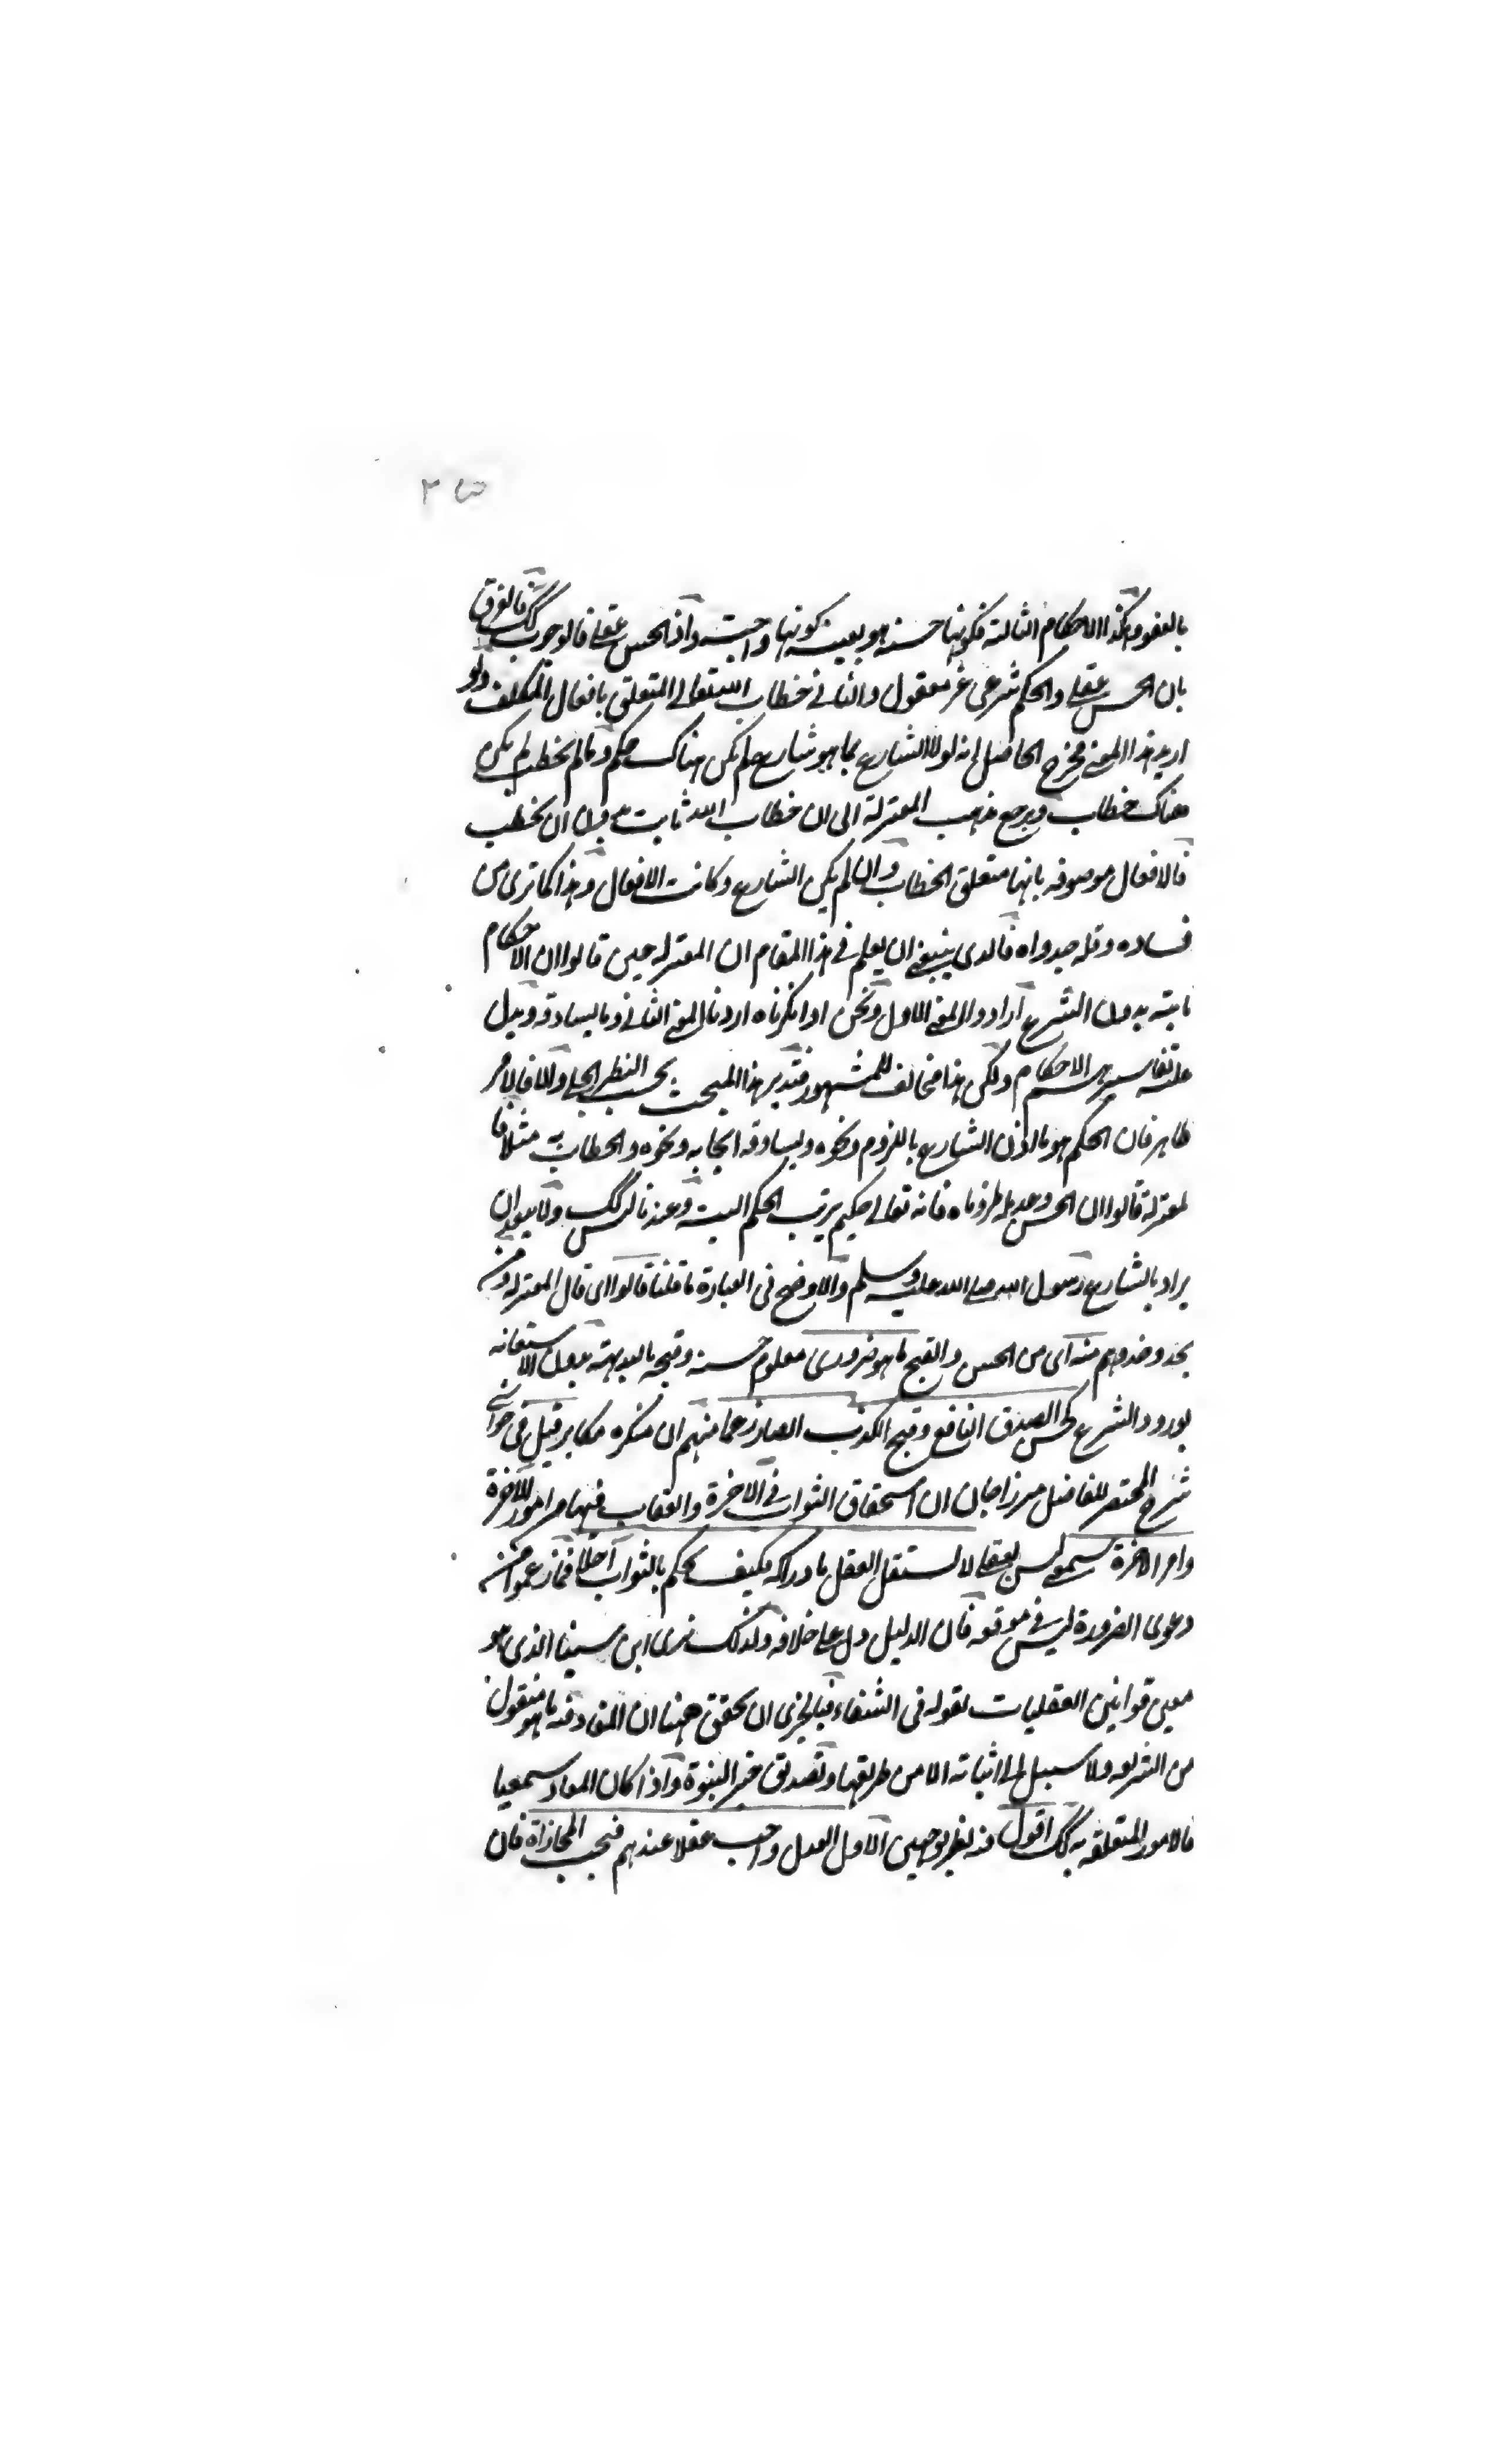 ٢٥
بالعفو وهكذا الاحكام الثالثة فكونها حسنة هو بعينه كونها واجبة واذ الحسن عقلي فالوجوب كك فالفرق
بان الحسن عقلي والحكم شرعي غير معقول والثاني خطاب الله تعالى المتعلق بافعال المكلف ولو
اريد هذا المعنى فخرج الحاصل انه لولا الشارع بما هو شارع لم يكن هناك حكم وما لم يخطب لم يكن
هناك خطاب ويرجع مذهب المعتزلة الى ان خطاب الله ثابت بدون ان يخطب
فالافعال موصوفة بانها متعلق الخطاب وان لم يكن الشارع وكانت الافعال وهذا كما ترى من
فساده وقلة جدواه فالذي ينبغي ان يعلم في هذا المقام ان المعتزلة حين قالوا ان الاحكام
ثابتة بدون الشرع ارادوا المعنى الاول ونحن اذا انكرناه اردنا المعنى الثاني وما يساوقه ويدل
عليه تفاسيرهم الاحكام ولكن هذا مخالف للمشهور فتدبر هذا المبحث بحسب النظر الجلي والا فالامر
ظاهر فان الحكم هو ما اذن الشارع باللزوم ونحوه ويساوقه ايجابه ونحوه والخطاب به مثلا فا
لمعتزلة قالوا ان الحسن وعديله طرفاه فانه تعالى حكيم يرتب الحكم البتة وعندنا ليس كك ولا يبعد ان
يراد بالشارع رسول الله صلى الله عليه وسلم والاوضح في العبارة ما قلنا قالوا اي قال المعتزلة ومن
يحذو حذوهم منه اي من الحسن والقبح ما هو ضروري معلوم حسنه وقبحه بالبديهة بدون الاستعانة
بورود الشرع كحسن الصدق النافع وقبح الكذب الضار زعما منهم ان منكره مكابر قيل في حواشي
شرح المختصر للفاضل ميرزاجان ان استحقاق الثواب في الاخرة والعقاب فيها من امور الاخرة
وامر الاخرة سمعي ليس بعقلي لا يستقل العقل بادراكه فكيف يحكم بالثواب آجلا فما زعموا من
دعوى الضرورة ليس في موقعه فان الدليل دل على خلافه ولذلك نرى ابن سينا الذي هو
معين قوانين العقليات بقوله في الشفاء فبالحري ان يحقق ههنا ان المعاد منه ما هو منقول
من الشريعة ولا سبيل الى اثباته الا من طريقها وتصديق خبر النبوة واذا كان المعاد سمعيا
فالامور المتعلقة به كك اقول فيه نظر بوجهين الاول العدل واجب عقلا عندهم فيجب المجازاة فان